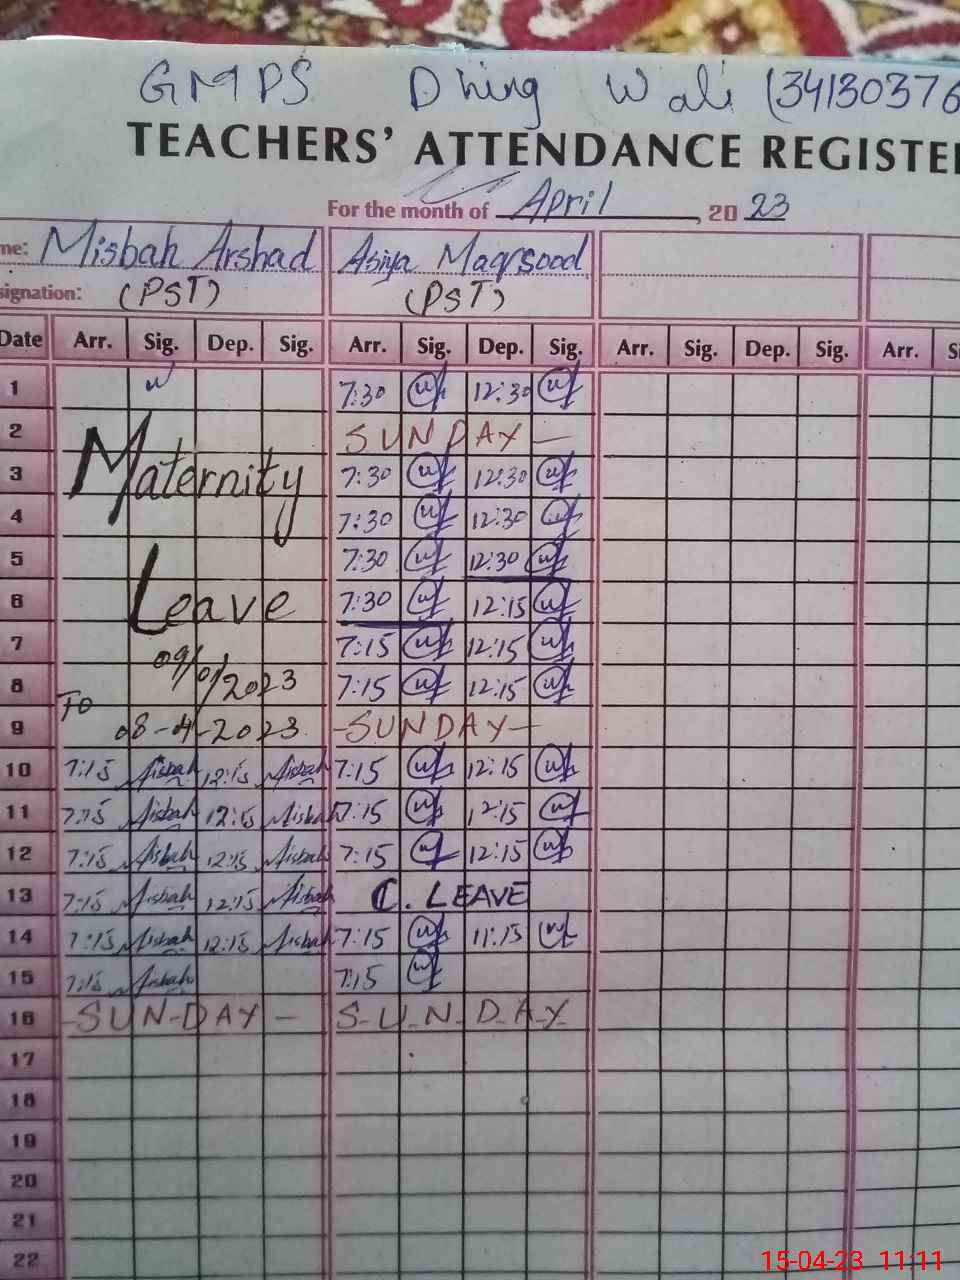 GMPS Dhing Wali (34130376
TEACHERS' ATTENDANCE REGISTE
For the month of April, 20 23
me: Misbah Arshad Asiya Maqsood
signation: (PST) (PST)
Date Arr. Sig. Dep. Sig. Arr. Sig. Dep. Sig. Arr. Sig. Dep. Sig. Arr. Si
1 7:30 12:30
2 SUNDAY
3 Maternity 7:30 12:30
4 7:30 12:30
5 7:30 12:30
6 Leave 7:30 12:15
7 09/01/2023 7:15 12:15
8 To 7:15 12:15
9 08-4-2023 -SUNDAY-
10 7:15 Misbah 12:15 Misbah 7:15 12:15
11 7:15 Misbah 12:15 Misbah 7:15 12:15
12 7:15 Misbah 12:15 Misbah 7:15 12:15
13 7:15 Misbah 12:15 Misbah C. LEAVE
14 7:15 Misbah 12:15 Misbah 7:15 11:15
15 7:15 Misbah 7:15
16 -SUN-DAY- S-U-N-D-A-Y
17
18
19
20
21
22
15-04-23 11:11